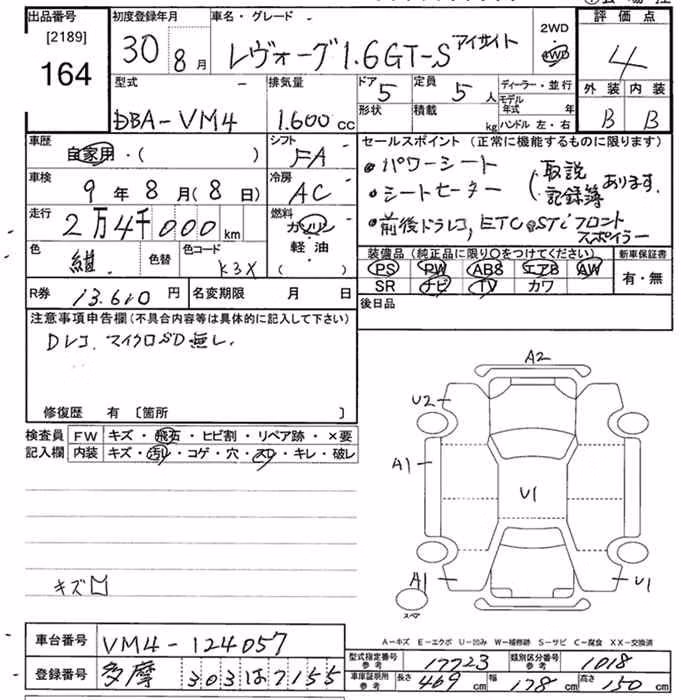 出品番号 [2189] 164
初度登録年月 30 8月
車名・グレード レヴォーグ1.6GT-S アイサイト
2WD 4WD
評価点 4
型式 DBA-VM4
排気量 1.600 cc
ドア 5
定員 5人
形状
積載 kg
ディーラー・並行
モデル年式 年
ハンドル 左・右
外装 B
内装 B
車歴 自家用・( )
シフト FA
車検 9年8月(8日)
冷房 AC
走行 2万4千000km
燃料 ガソリン 軽・油 ( )
色 紺
色替
色コード K3X
セールスポイント (正常に機能するものに限ります)
・パワーシート
・シートヒーター
(取説 記録簿 あります.
・前後ドラレコ, ETC ・STiフロント
スポイラー
装備品 (純正品に限り○をつけてください)
新車保証書
PS PW ABS エアB AW
有・無
SR ナビ TV カワ
R券 13.610円
名変期限 月 日
後日品
注意事項申告欄 (不具合内容等は具体的に記入して下さい)
Dレコ、マイクロSD無し.
修復歴 有 〔箇所 〕
検査員 FW キズ・飛石・ヒビ割・リペア跡・×要
記入欄 内装 キズ・汚レ・コゲ・穴・スレ・キレ・破レ
A2
U2
A1
U1
A1
U1
キズ
スペア
A-キズ E-エクボ U-凹み W-補修跡 S-サビ C-腐食 XX-交換済
車台番号 VM4-124057
登録番号 多摩 303は7155
型式指定番号 参考 17723
類別区分番号 参考 1018
車庫証明用 参考 長さ 469cm 幅 178cm 高さ 150cm